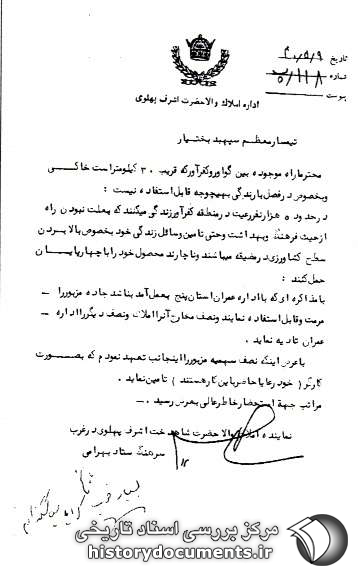 تاریخ ۴۰/۵/۹
شماره ۵/۱۱۸
پیوست
اداره املاك والاحضرت اشرف پهلوی
تیمسارمعظم سپهبد بختیار
محترما راه موجوده بین گواوروکفرآورکه قریب ۳۰ کیلومتراست خاکی
وبخصوص درفصل بارندگی بهیچوجه قابل استفاده نیست :
درحدود ۵ هزارنفررعیت درمنطقه کفرآورزندگی میکنند که بعلت نبودن راه
ازحیث فرهنگ وبهداشت وحتی تامین وسائل زندگی خود بخصوص بالا بردن
سطح کشاورزی درمضیقه میباشند وناچارند محصول خود را باچهارپایان
حمل کنند :
بامذاکره ای که بااداره عمران استان پنج بعمل آمد بناشد جاده مزبوررا
مرمت وقابل استفاده نمایند ونصف مخارج آنرا املاك ونصف دیگررا اداره
عمران تادیه نماید .
باعرض اینکه نصف سهمیه مزبوررا اینجانب تعهد نمودم که بصورت
کارگر ( خود رعایا حاضرباین کارهستند ) تامین نماید .
مراتب جهة استحضارخاطرعالی بعرض رسید .
نماینده املاك والاحضرت شاهدخت اشرف پهلوی درغرب
سرهنگ ستاد بهرامی
بسیار خوب
مرکز بررسی اسناد تاریخی
historydocuments.ir